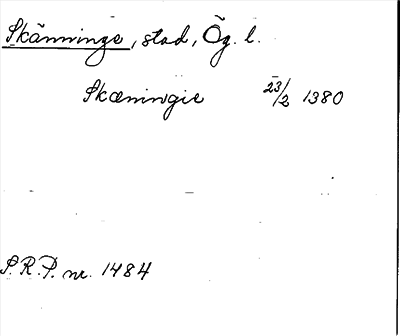 Skänninge, stad, Ög. l.
Skæningie 23/2 1380
S.R.P. nr. 1484